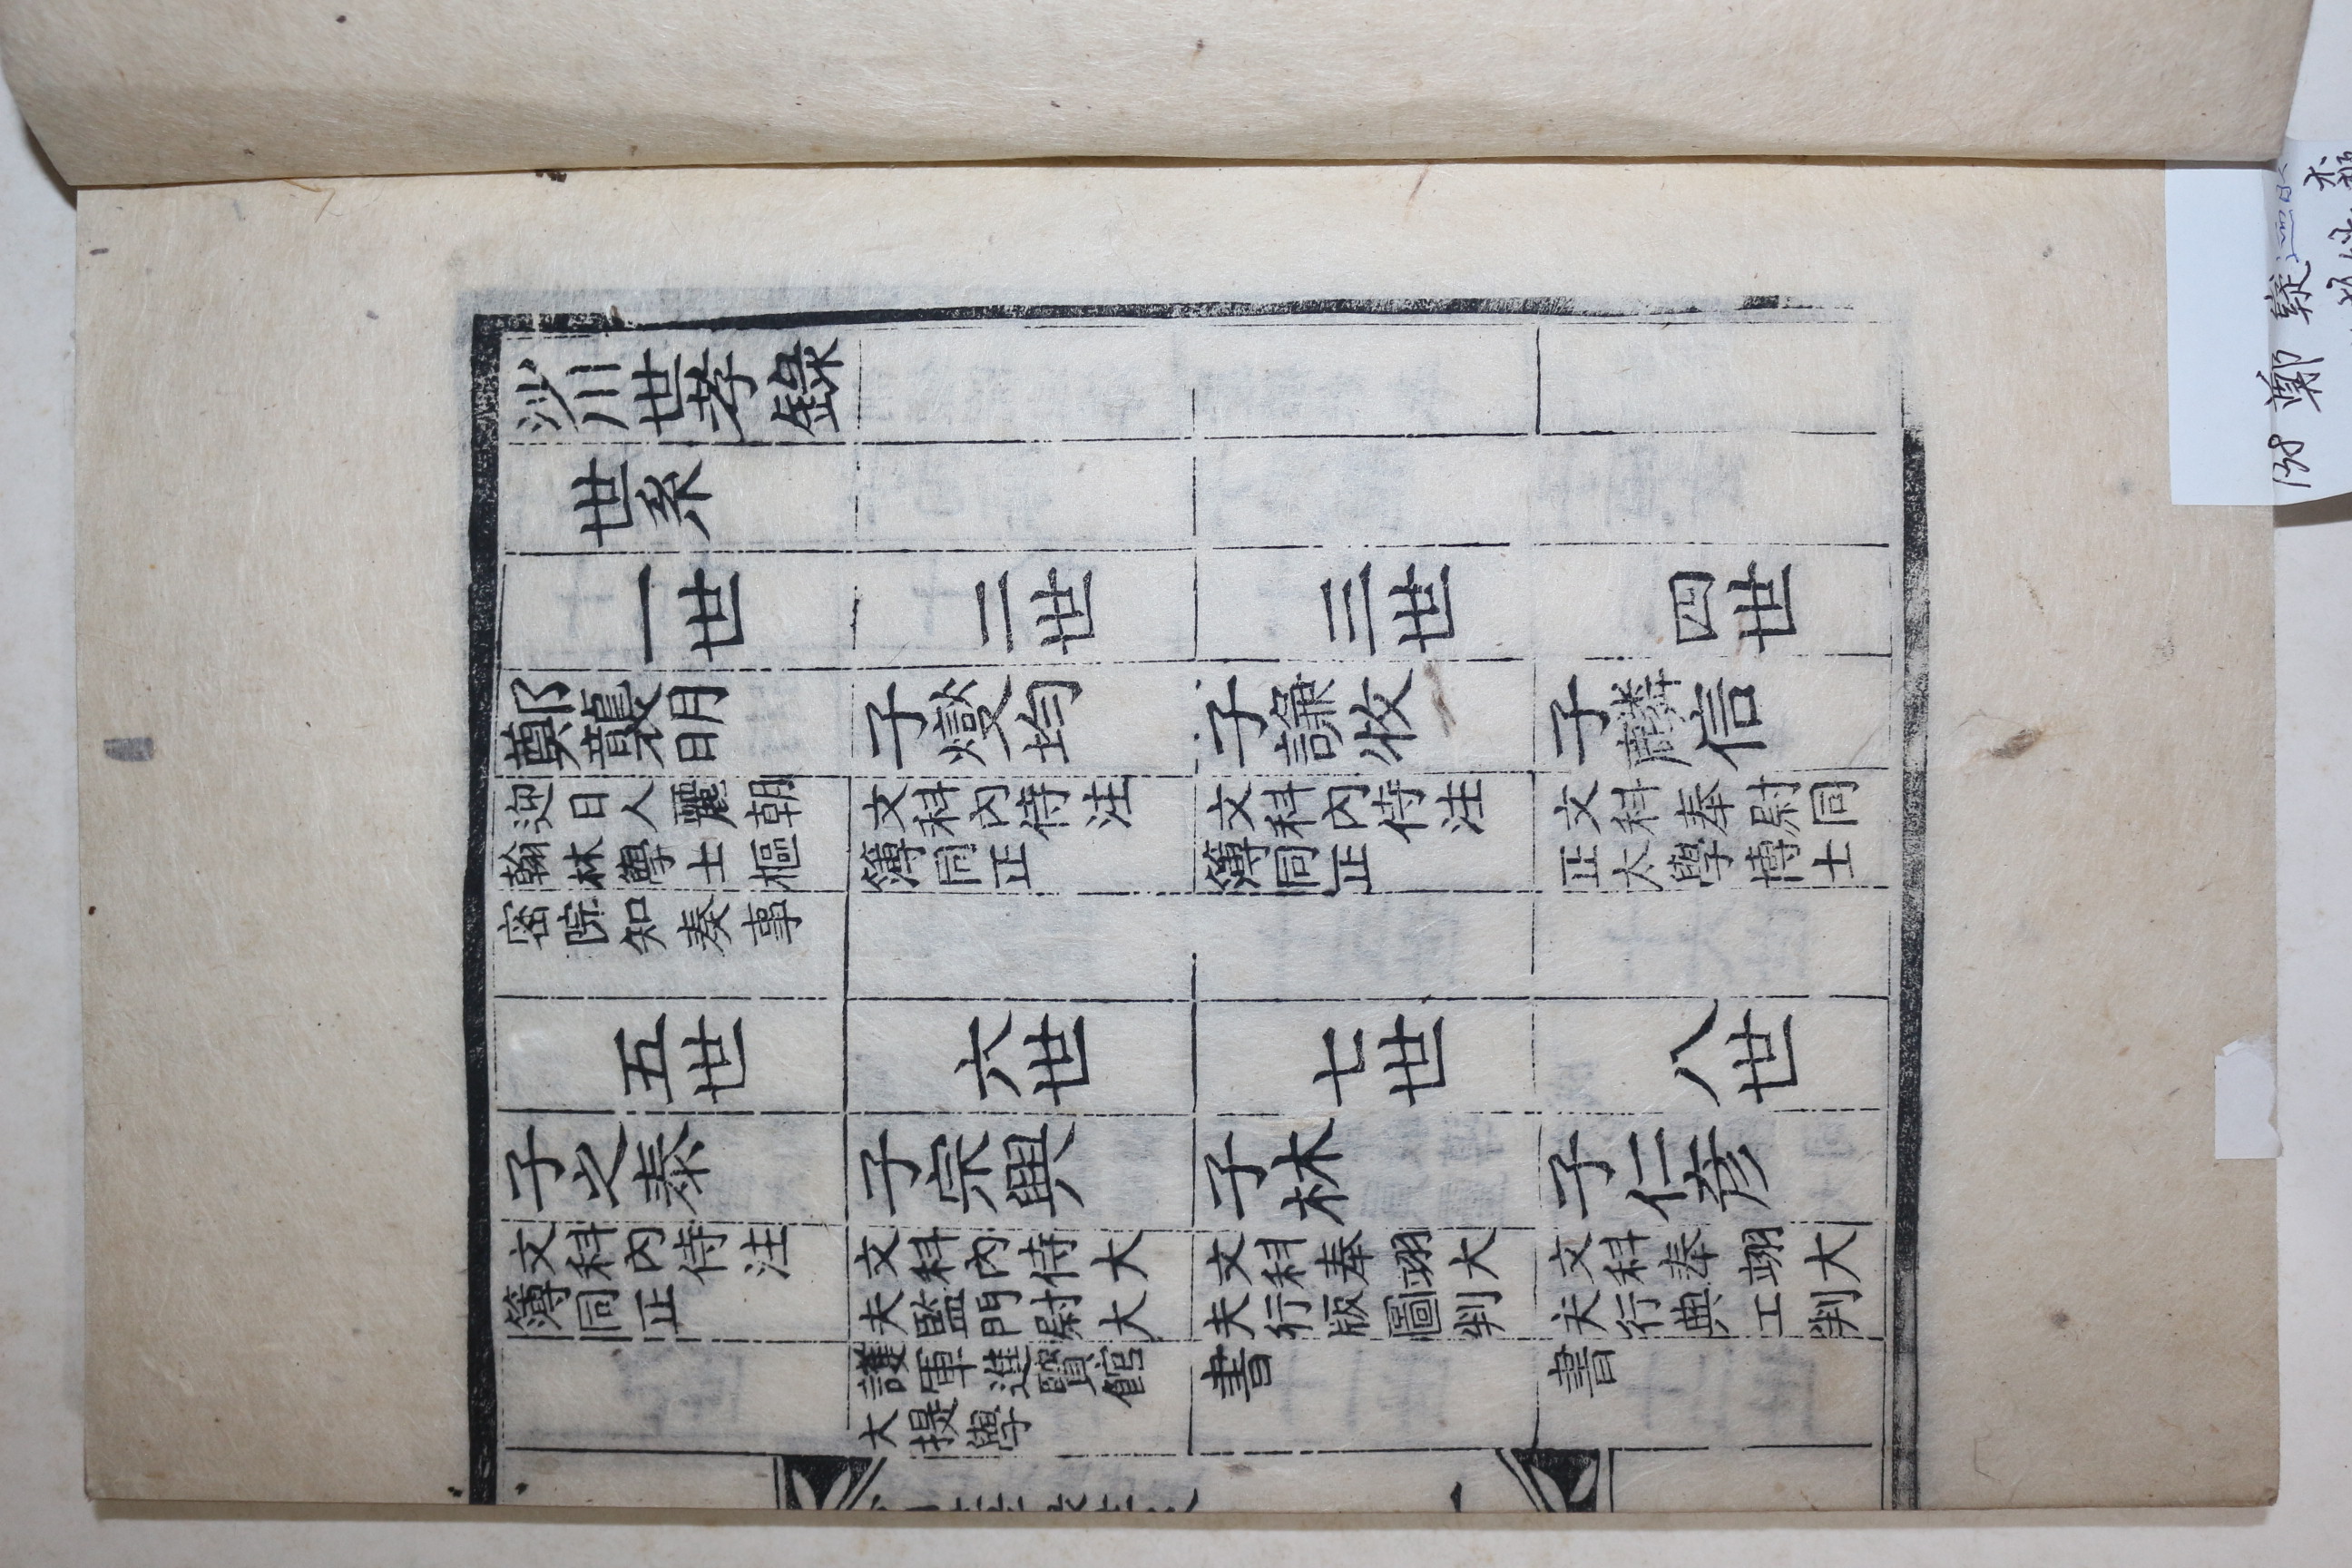 沙川世孝錄
世系
一世
二世
三世
四世
鄭襲明
迎日人麗朝
翰林學士樞
密院知奏事
子燮均
文科內侍注
簿同正
子謙牧
文科內侍注
簿同正
子麟信
文科奉尉同
正太學博士
五世
六世
七世
八世
子之泰
文科內侍注
簿同正
子宗興
文科內侍大
夫監門尉大
護軍進賢館
大提學
子林
文科奉翊大
夫行版圖判
書
子仁彦
文科奉翊大
夫行典工判
書
一
138 鄭